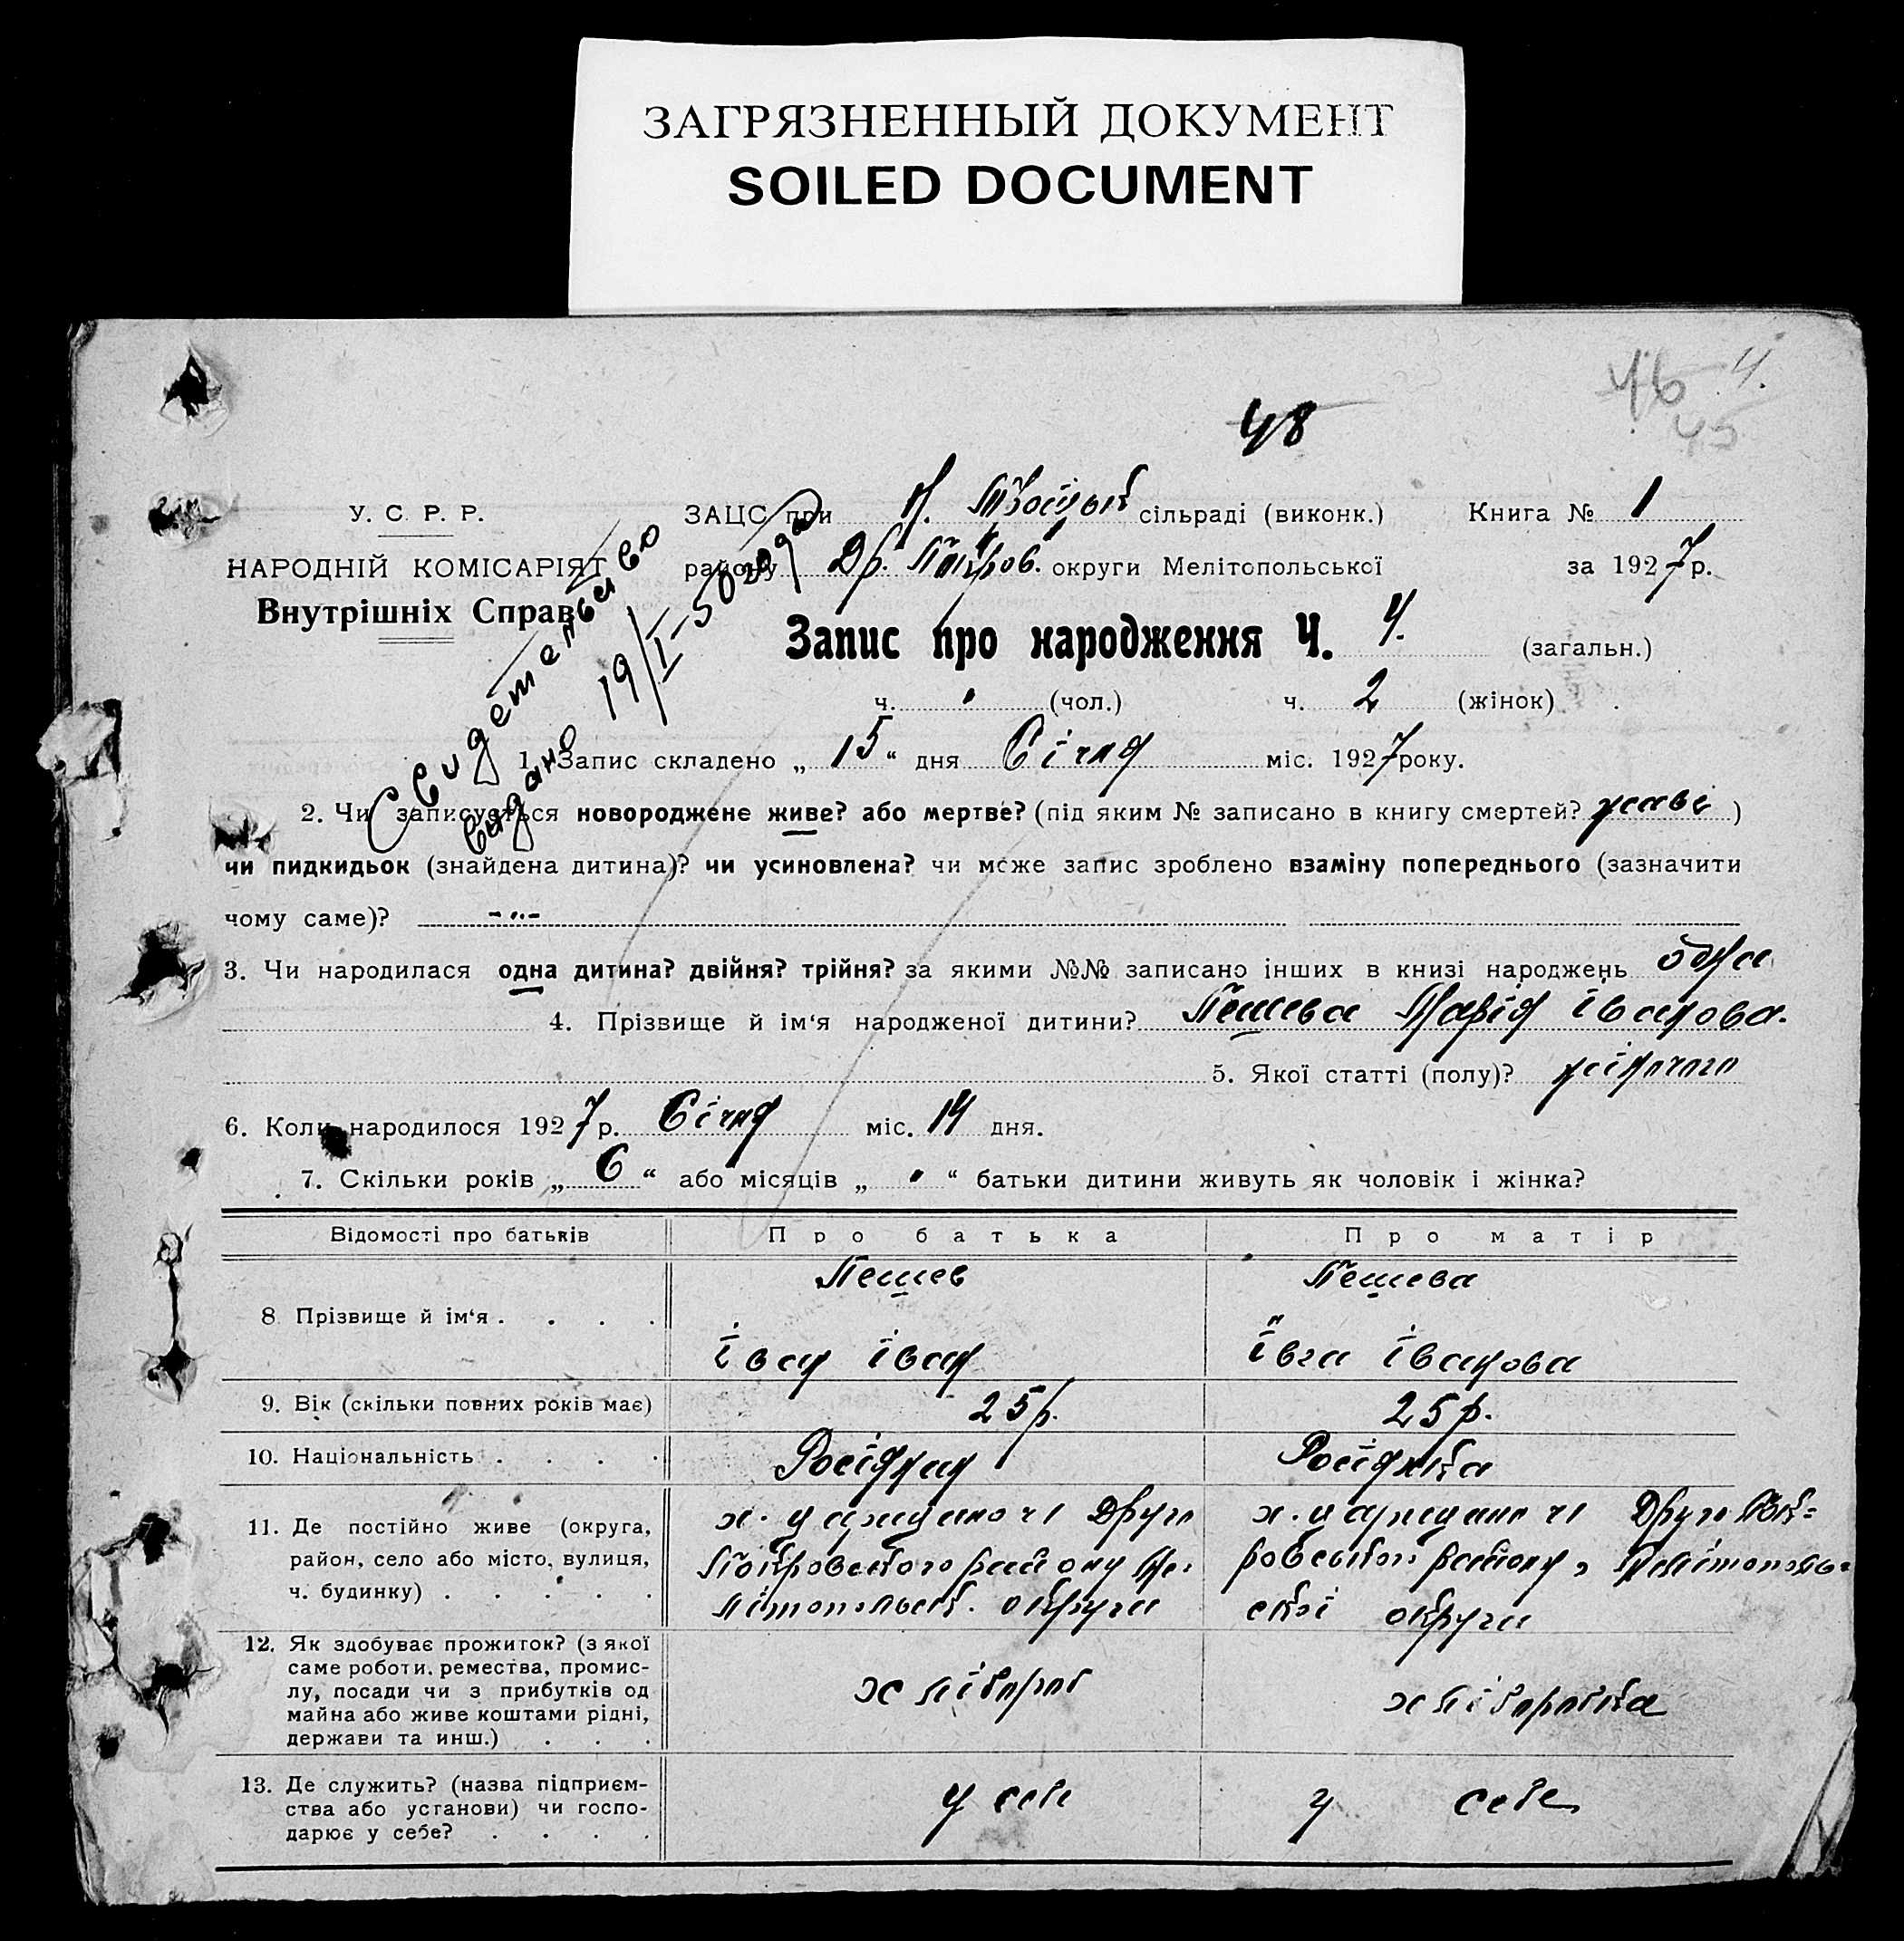 ЗАГРЯЗНЕННЫЙ ДОКУМЕНТ
SOILED DOCUMENT
46 4.
45
48
У. С. Р. Р.
НАРОДНІЙ КОМІСАРІЯТ
Внутрішніх Справ
ЗАЦС при сільраді (виконк.) Книга № 1
району Др. Покров. округи Мелітопольської за 1927 р.
Свидетельство
выдано 19/I-50 года
Запис про народження Ч. 4. (загальн.)
ч. (чол.) ч. 2 (жінок)
1. Запис складено „ 15 “ дня Січня міс. 1927 року.
2. Чи записується новороджене живе? або мертве? (під яким № записано в книгу смертей? живе )
чи пидкидьок (знайдена дитина)? чи усиновлена? чи може запис зроблено взаміну попереднього (зазначити
чому саме)?
3. Чи народилася одна дитина? двійня? трійня? за якими №№ записано інших в книзі народжень одна
4. Прізвище й ім‘я народженої дитини? Пешева Марія Іванова.
5. Якої статті (полу)? жіночого
6. Коли народилося 1927 р. Січня міс. 14 дня.
7. Скільки років „ 6 “ або місяців „ “ батьки дитини живуть як чоловік і жінка?
Відомості про батьків Про батька Про матір
8 Прізвище й ім‘я . . . . Пешев Пешева
Іван Іван Івга Іванова
9. Вік (скільки повних років має) 25 р. 25 р.
10. Національність . . . . Росіянин Росіянка
11. Де постійно живе (округа, район, село або місто, вулиця, ч. будинку) . . . . .
Друго
Покровського району Ме-
літопольськ. округи
Друго Пок-
ровського району, Мелітополь-
скої округи
12. Як здобуває прожиток? (з якої
саме роботи, ремества, промис-
лу, посади чи з прибутків од
майна або живе коштами рідні,
держави та инш.) . . .
хлібороб хліборобка
13. Де служить? (назва підприєм-
ства або установи) чи госпо-
дарює у себе? . . . .
у себе у себе